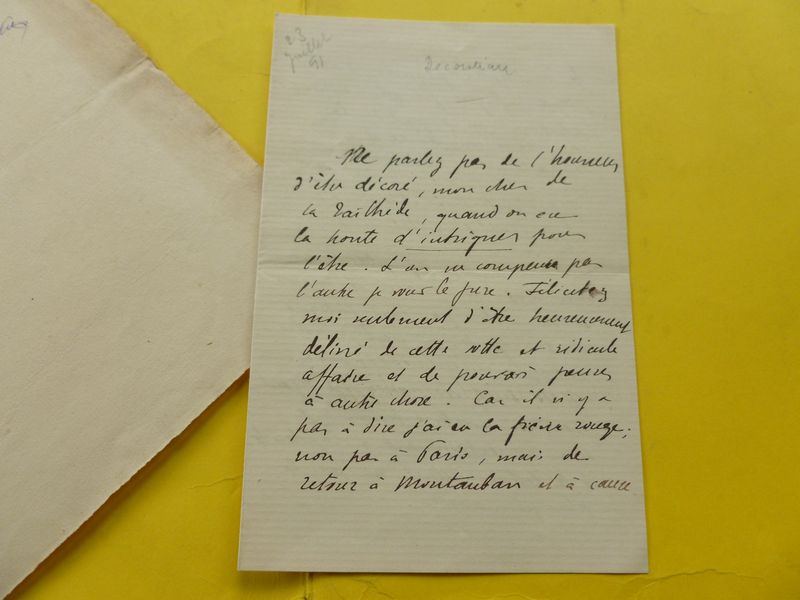 23
juillet
91
Décoration
Ne parlez pas de l'honneur
d'être décoré, mon cher de
la Tailhède, quand on a eu
la honte d'intriguer pour
l'être. L'un ne compense pas
l'autre je vous le jure. Félicitez
moi seulement d'être heureusement
délivré de cette sotte et ridicule
affaire et de pouvoir penser
à autre chose. Car il n'y a
pas à dire j'ai eu la fièvre rouge,
non pas à Paris, mais de
retour à Montauban et à cause